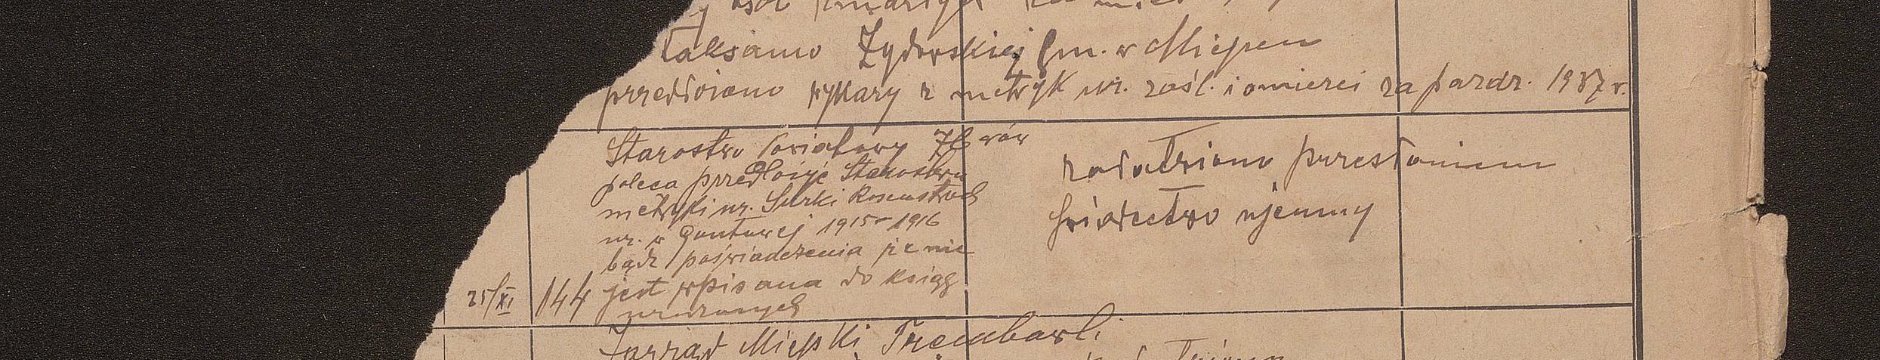 Taksamo Żydowskiej Gm. w Miejscu
przedłożono wykazy z metryk ur. zaśl. i śmierci za pazdr. 1937 r.
Starostwo Powiatowy Zborów
poleca przedłożyć Starostwu
metryki ur. Surki Rosenstrach
ur. w Gontowej 1915 r 1916
bądź poświadczenia że nie
25/XI 144 jest wpisana do ksiąg
urodzonych
załatwiono przesłaniem
świadectwo ujemny
Zarząd Miejski Trembowli